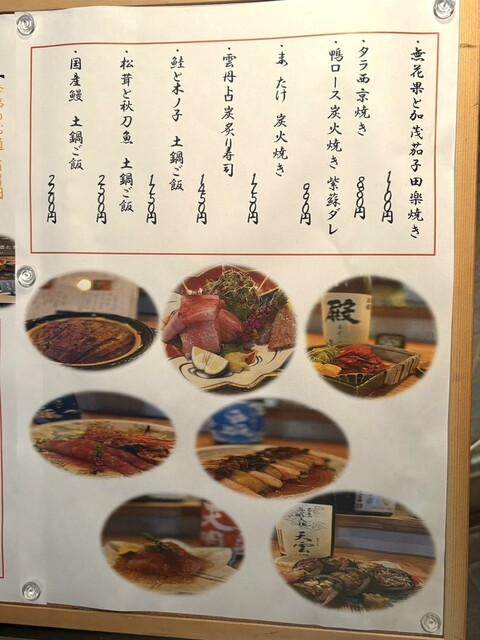 ・無花果と加茂茄子田楽焼き
1100円
・タラ西京焼き
880円
・鴨ロース炭火焼き 紫蘇ダレ
990円
・まつたけ 炭火焼き
・雲丹占炭炙り寿司
1450円
・鮭と木ノ子 土鍋ご飯
・松茸と秋刀魚 土鍋ご飯
2500円
・国産鰻 土鍋ご飯
2200円
殿
天雲